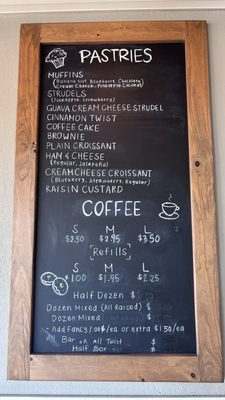 PASTRIES
MUFFINS
(Banana Nut, Blueberry, Chocolate,
Cream Cheese, Pineapple Coconut)
STRUDELS
(Pineapple, Strawberry)
GUAVA CREAM CHEESE STRUDEL
CINNAMON TWIST
COFFEE CAKE
BROWNIE
PLAIN CROISSANT
HAM & CHEESE
(Regular, Jalapeño)
CREAMCHEESE CROISSANT
(Blueberry, Strawberry, Regular)
RAISIN CUSTARD
COFFEE
S M L
$2.50 $2.95 $3.50
[Refills]
S M L
$1.00 $1.95 $2.25
Half Dozen $
Dozen Mixed (All Raised) $
Dozen Mixed $
- Add Fancy /ea or extra $1.50/ea
All Bar or All Twist $
Half Bar $